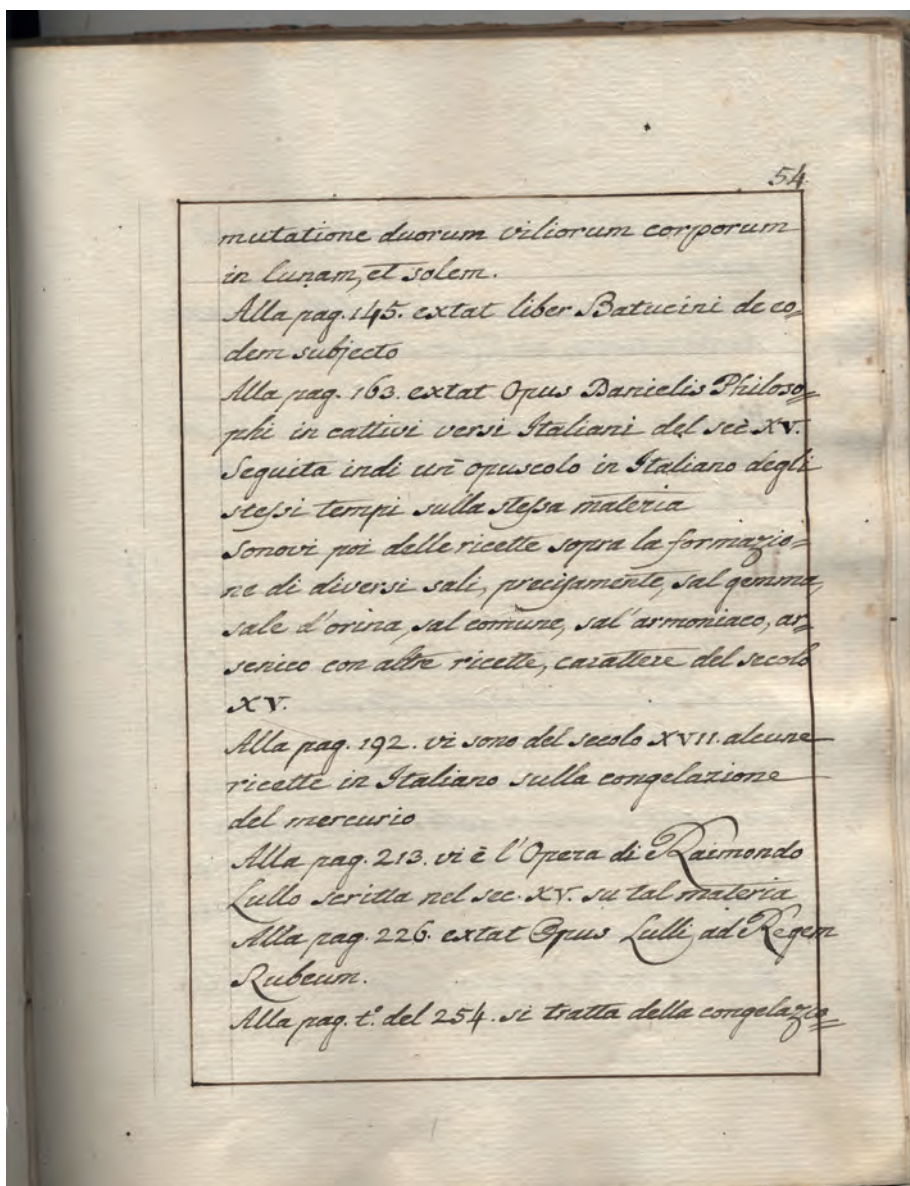 54.
mutatione duorum viliorum corporum
in lunam, et solem.
Alla pag. 145. extat liber Batucini de eo=
dem subjecto
Alla pag. 163. extat Opus Danielis Philoso=
phi in cattivi versi Italiani del sec XV.
Seguita indi un opuscolo in Italiano degli
stessi tempi sulla stessa materia
Sonovi poi delle ricette sopra la formazio=
ne di diversi sali, precisamente, sal gemma,
sale d'orina, sal comune, sal' armoniaco, ar=
senico con altre ricette, carattere del secolo
XV.
Alla pag. 192. vi sono del secolo XVII. alcune
ricette in Italiano sulla congelazione
del mercurio
Alla pag. 213. vi è l'Opera di Raimondo
Lullo scritta nel sec. XV. su tal materia
Alla pag. 226. extat Opus Lulli, ad Regem
Rubeum.
Alla pag. t.º del 254. si tratta della congelazio=